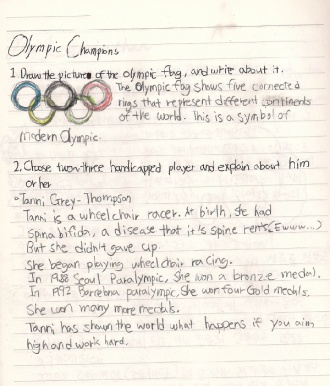 Olympic Champions
1. Draw the picture of the olympic flag, and write about it.
The Olympic flag shows five connected
rings that represent different continents
of the world. This is a symbol of
modern Olympic.
2. Choose two~three handicapped player and explain about him
or her
Tanni Grey-Thompson
Tanni is a wheelchair racer. At birth, She had
spina bifida, a disease that it's spine rents(Ewww...)
But she didn't gave up.
She began playing wheelchair racing.
In 1988 Seoul Paralympic, She won a bronze medal.
In 1992 Barcelona paralympic, She won four Gold medals.
She won many more medals.
Tanni has shown the world what happens if you aim
high and work hard.